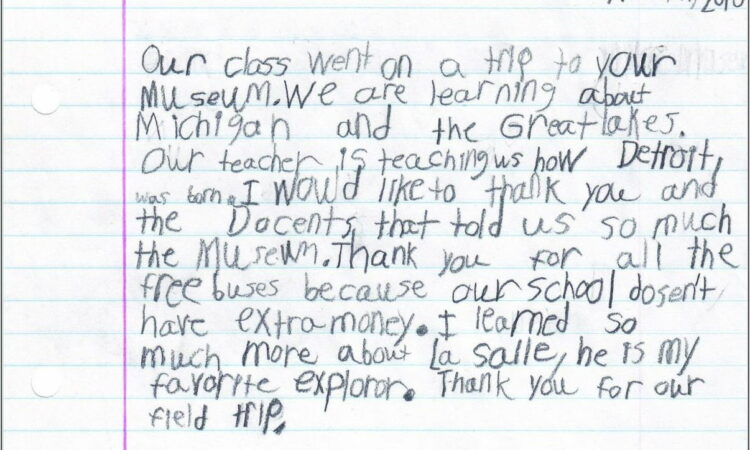 2010
Our class went on a trip to your
Museum. We are learning about
Michigan and the Great lakes.
Our teacher is teaching us how Detroit,
was born. I would like to thank you and
the Docents, that told us so much
the Musewm. Thank you for all the
free buses because our school dosen't
have extra money. I learned so
much more about La Salle, he is my
favorite exploror. Thank you for our
field trip.